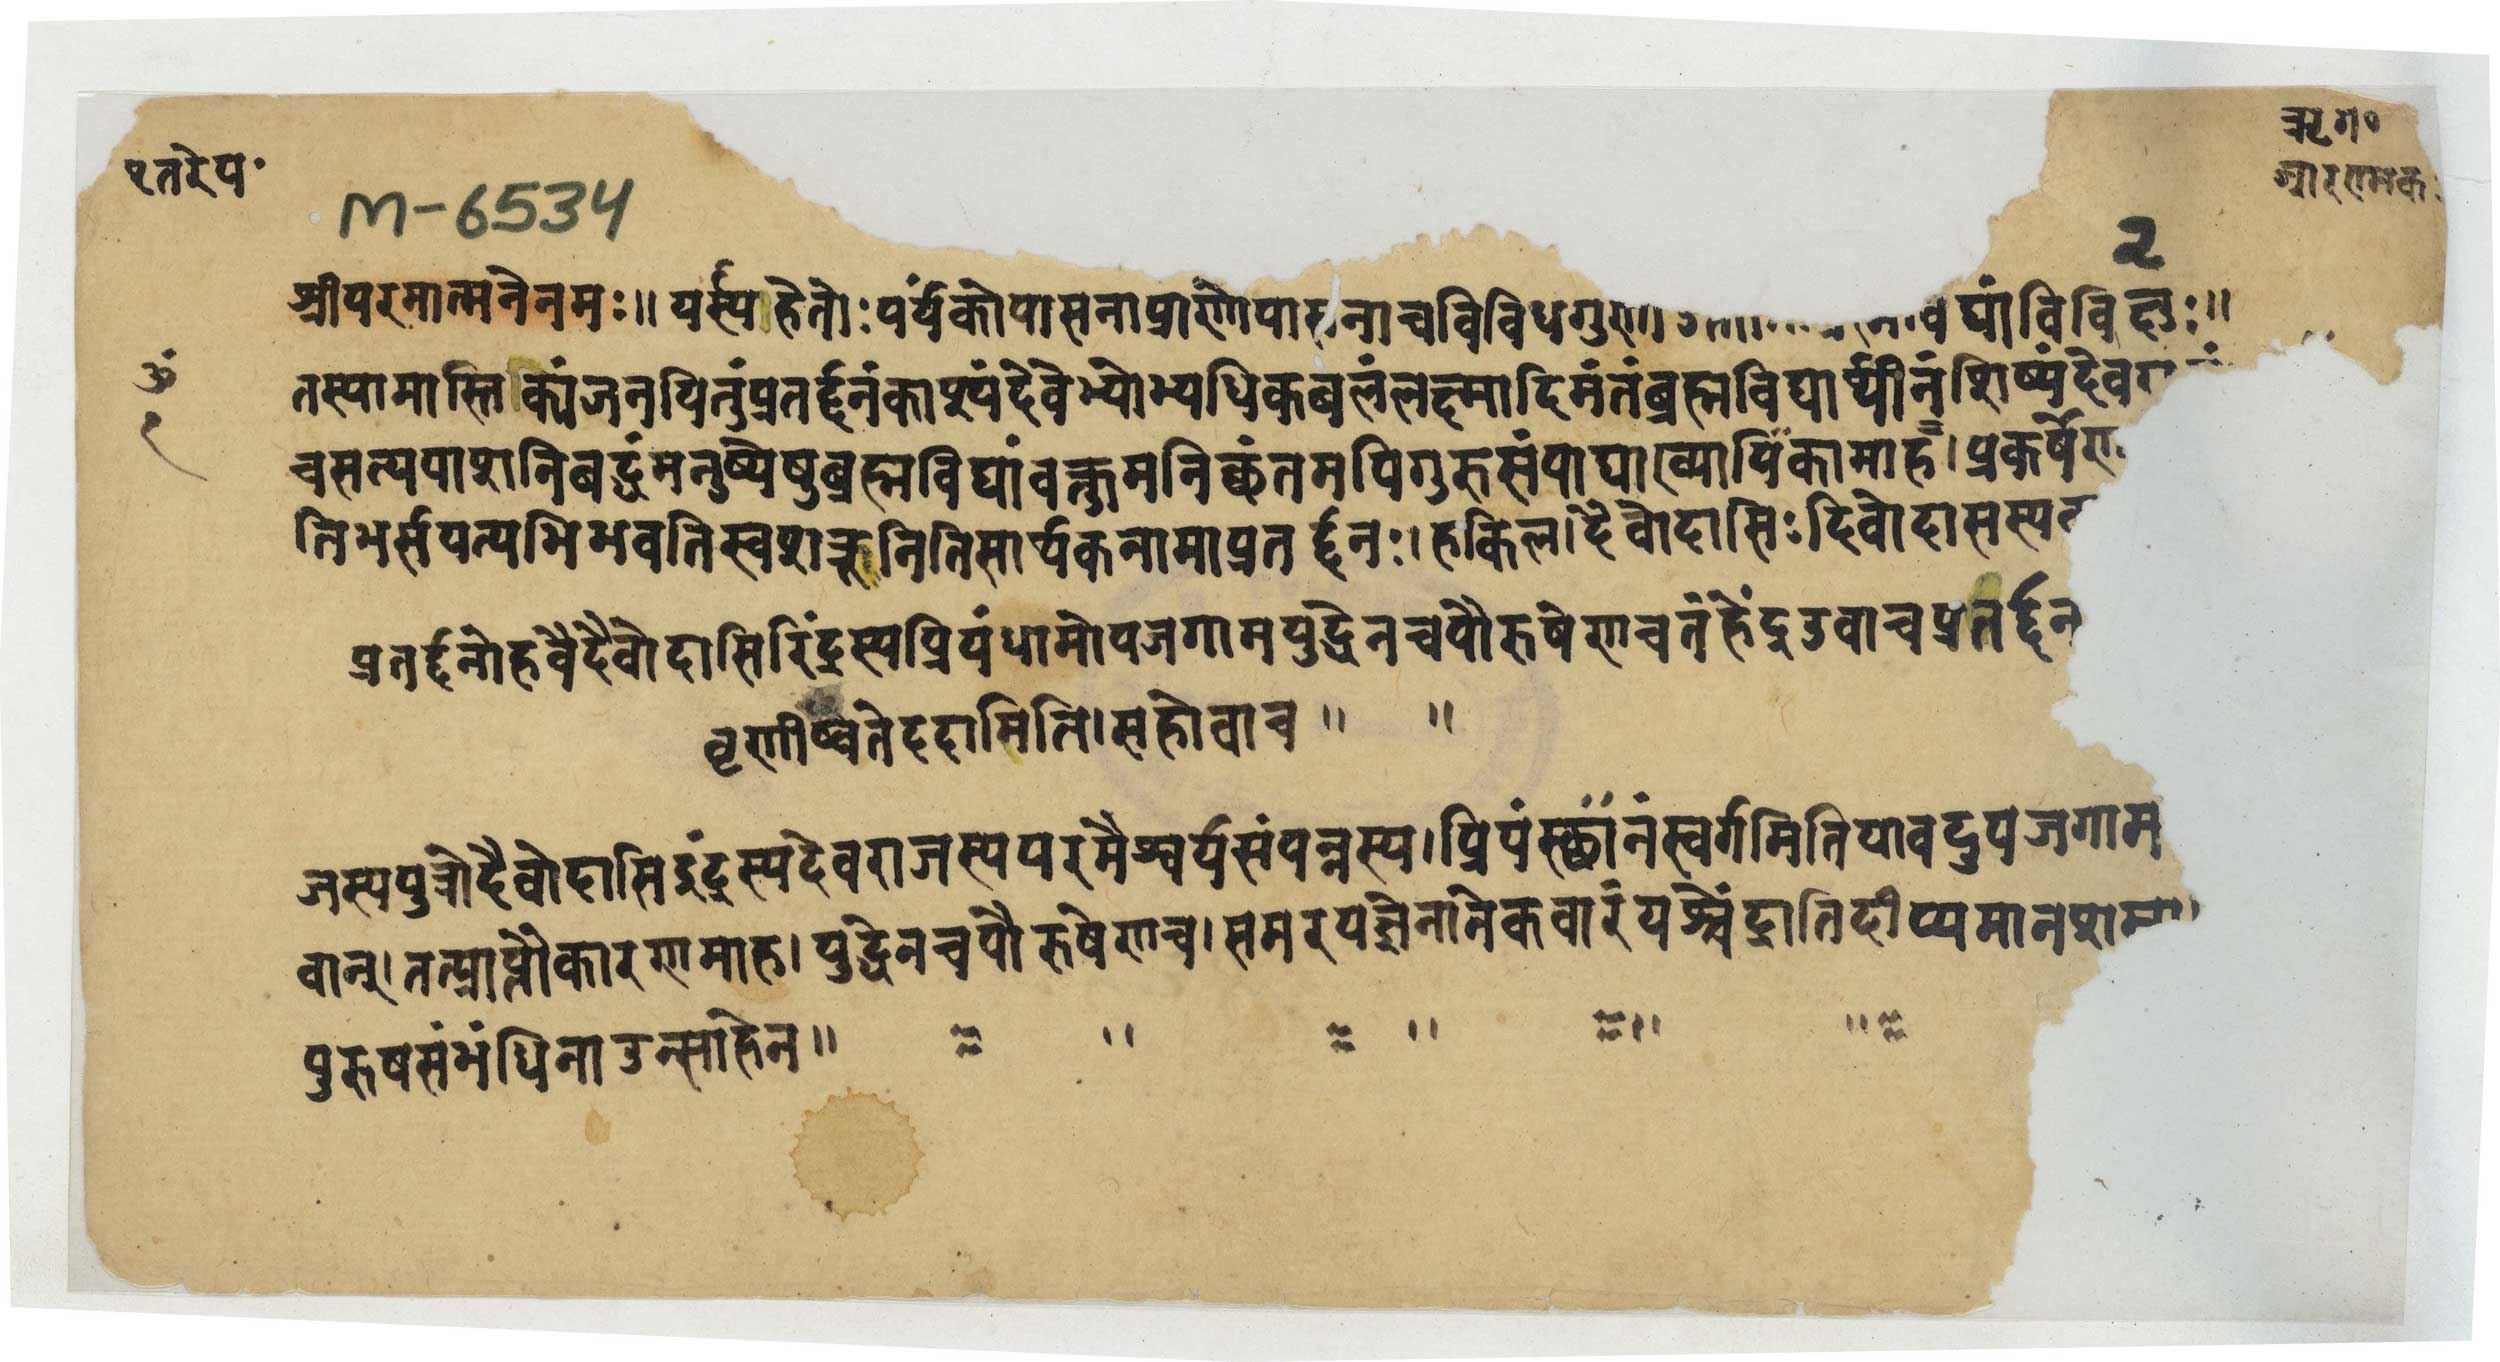 एतरेय॰
ऋग॰
आरण्यक
M-6534
२
श्रीपरमात्मनेनमः॥ यर्स्यहेतोःपर्यंकोपासनाप्राणोपासनाचविविधगुण द्यांविविक्षुः॥
तस्यामास्तिक्यंजनयितुंप्रतर्द्दनंकाश्यंदेवेभ्योभ्यधिकबलंलक्ष्मादिमंतंब्रह्मविद्यार्थीनंशिष्यंदेवरा
ॐ
१
चसत्यपाशनिबद्धंमनुष्येषुब्रह्मविद्यांवक्तुमनिछंतमपिगुरुसंपाद्याख्यायिकामाह।प्रकर्षेण
तिभर्सयत्यभिभवतिस्वशत्रूनितिसार्थकनामाप्रतर्द्दनः।हकिल।दैवोदासिःदिवोदासस्य
प्रतर्द्दनोहवैदैवोदासिरिंद्रस्यप्रियंधामोपजगामयुद्धेनचपौरुषेणचतंहेंद्रउवाचप्रतर्द्दन
वृणीष्वतेददामिति।सहोवाच॥ ॥
जस्यपुत्रोदैवोदासिइंद्रस्यदेवराजस्यपरमैश्वर्यसंपन्नस्य।प्रियंस्छानंस्वर्गमितियावदुपजगाम
वान्।तत्प्राप्तौकारणमाह।युद्धेनचपौरुषेणच।समरयज्ञेनानेकवारंयश्चेंद्रातिदीप्यमानशस्त्रा
पुरुषसंभंधिनाउत्साहेन॥ ॥ ॥ ॥ ॥